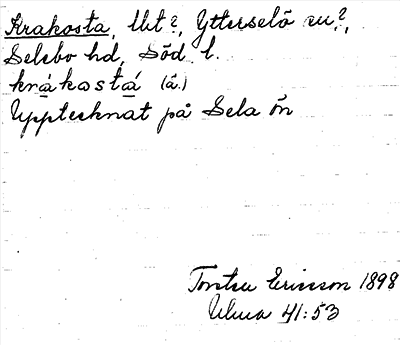 Krakosta, Ubt?, Ytterselö sn?,
Selebo hd, Söd l.
kråkostá (å.)
Upptecknat på Sela ön
Torsten Ericsson 1898
Ulma 41:53